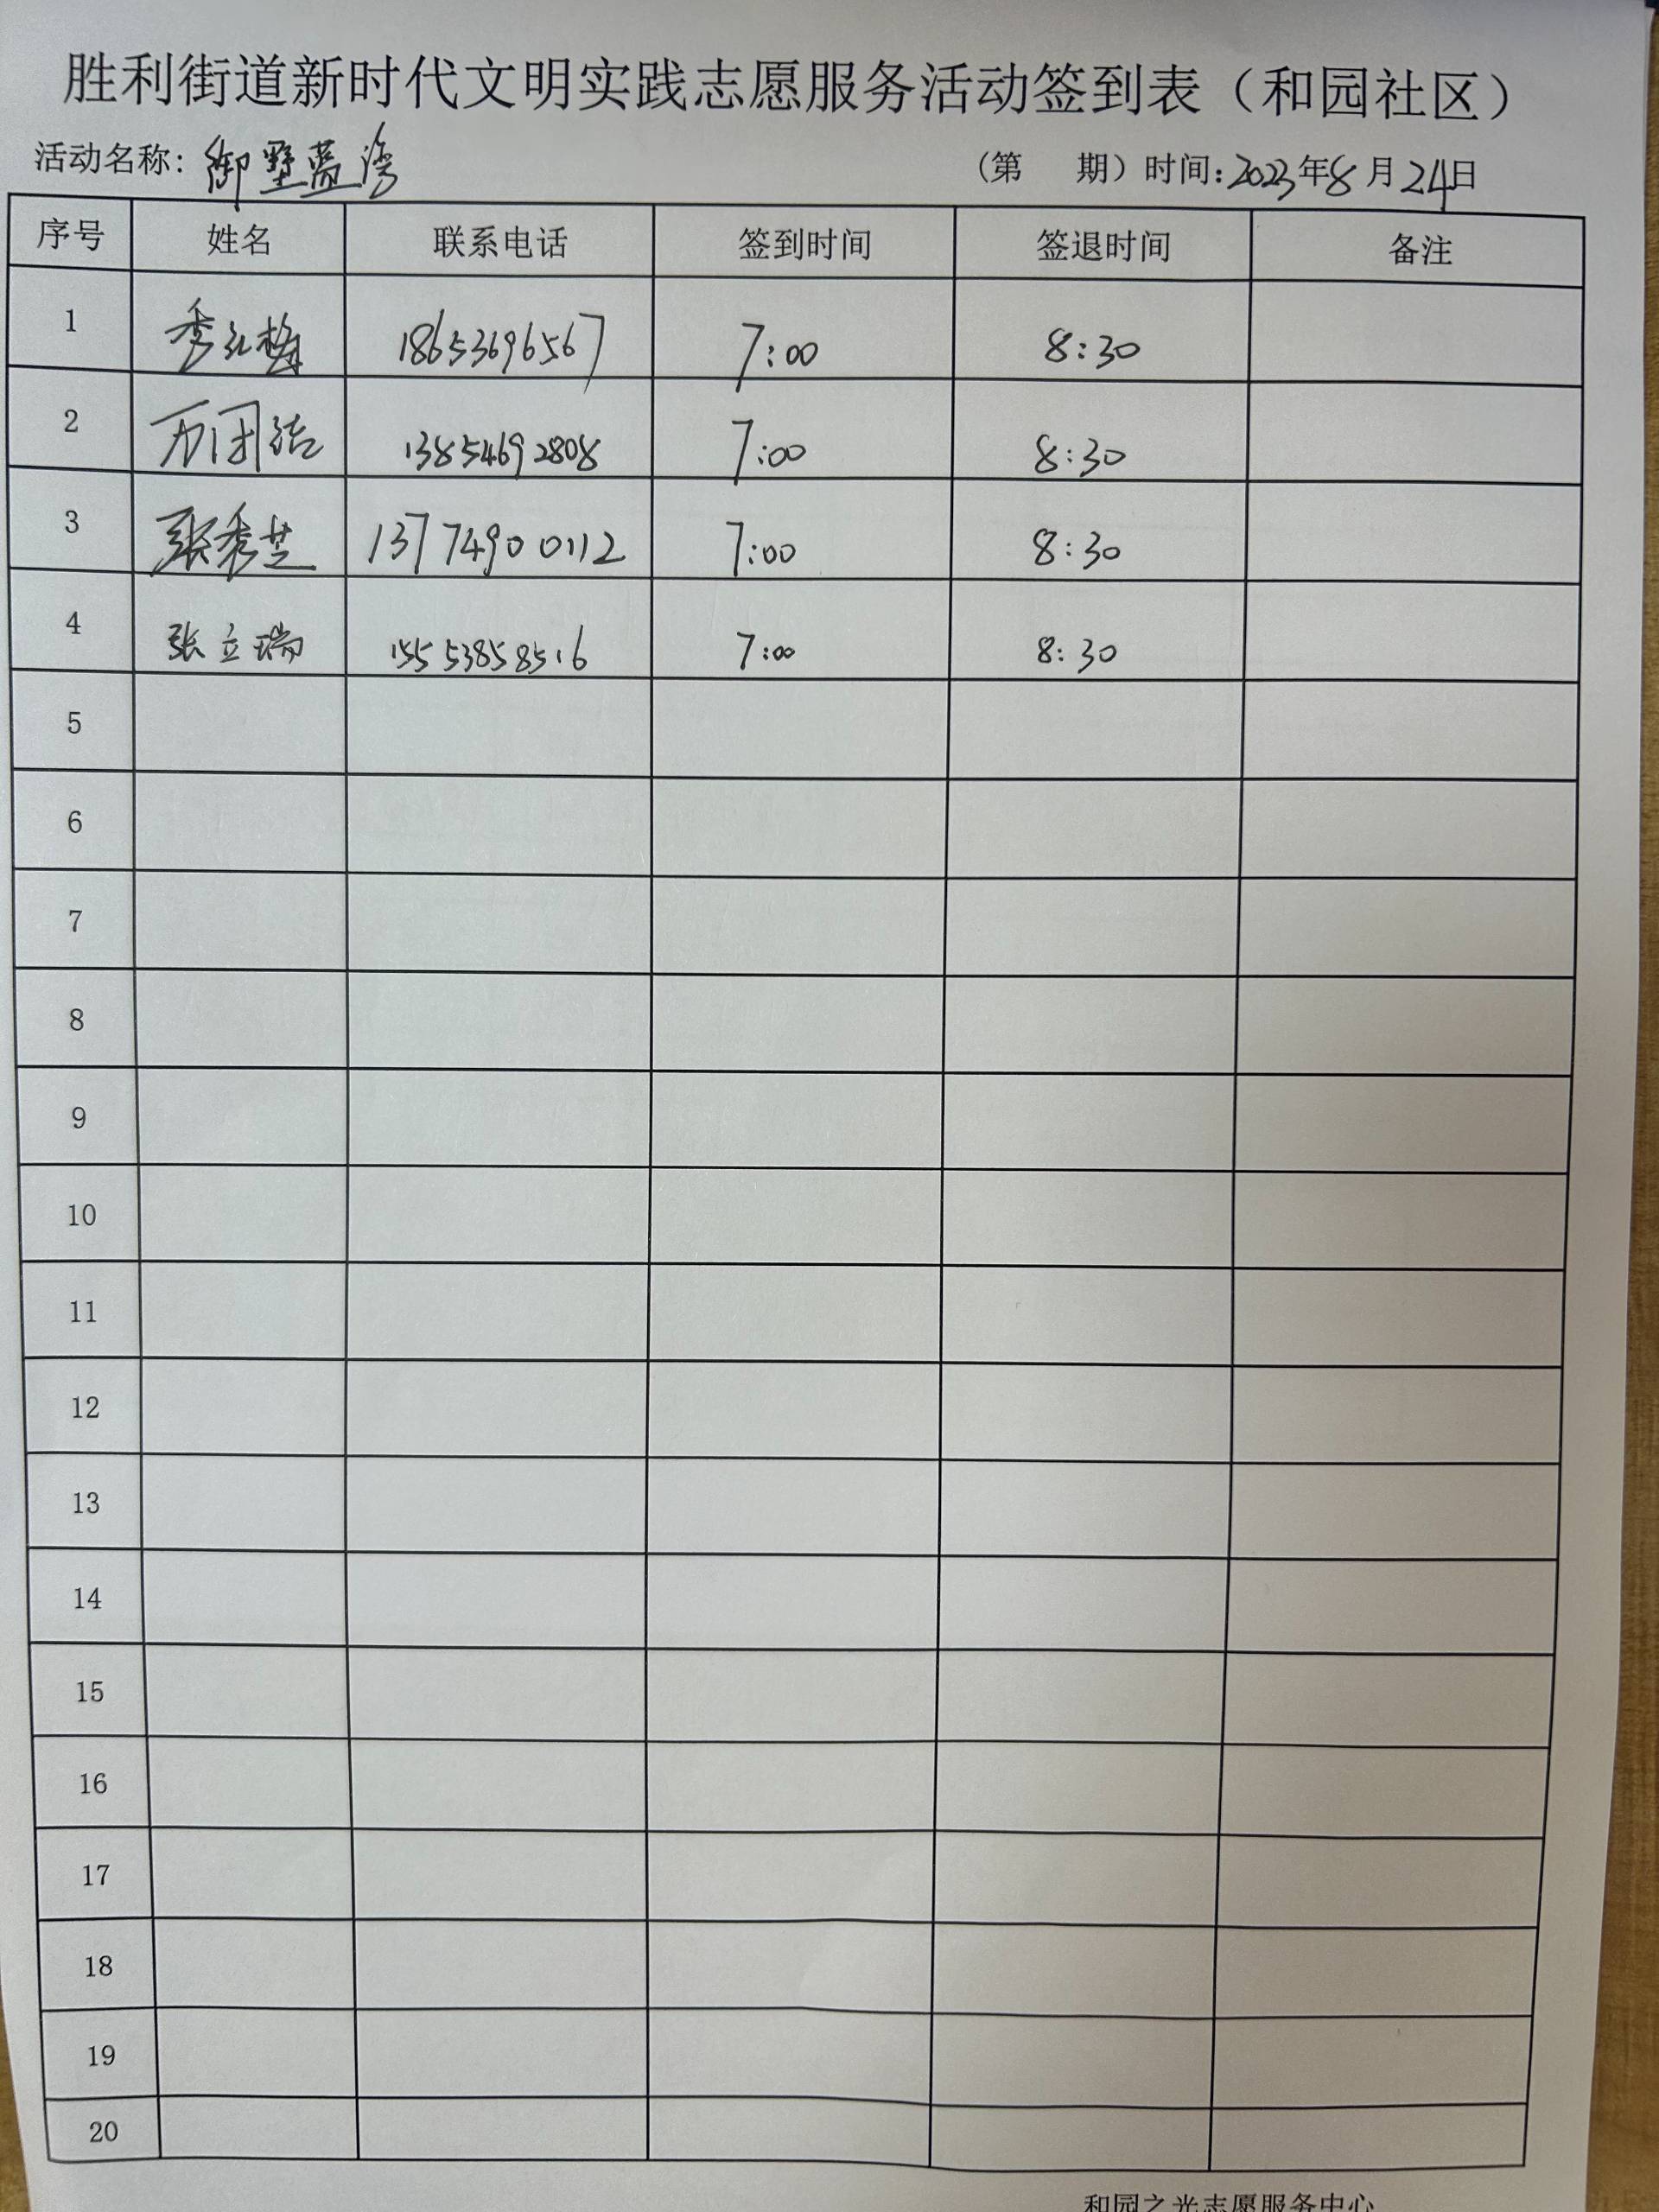 胜利街道新时代文明实践志愿服务活动签到表（和园社区）
活动名称：御墅蓝湾 （第 期）时间：2023年8月24日
序号 姓名 联系电话 签到时间 签退时间 备注
1 18653696567 7:00 8:30
2 万团结 13854692808 7:00 8:30
3 张秀芝 13774900112 7:00 8:30
4 张立瑞 15553858516 7:00 8:30
5
6
7
8
9
10
11
12
13
14
15
16
17
18
19
20
和园之光志愿服务中心